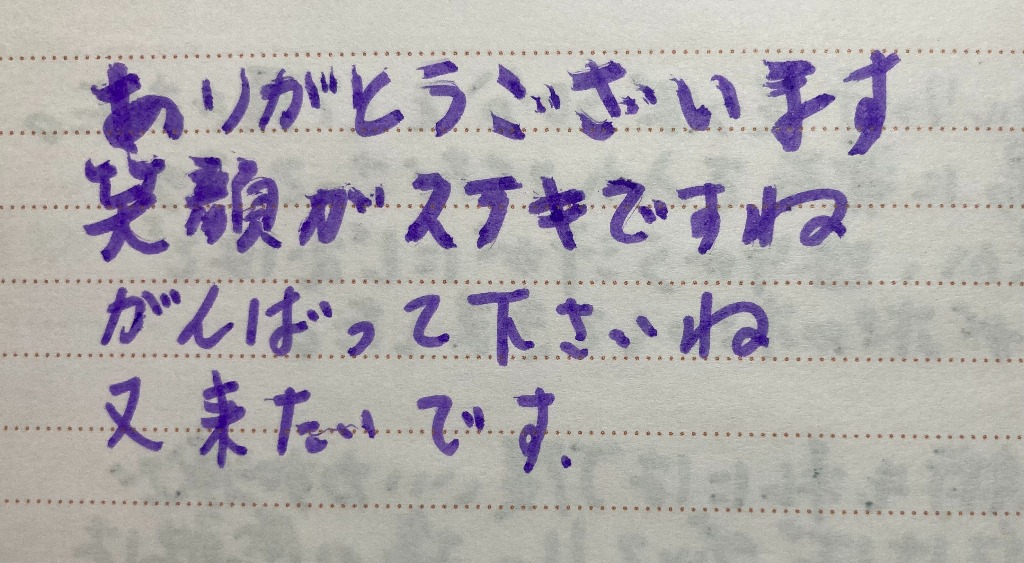 ありがとうございます
笑顔がステキですね
がんばって下さいね
又来たいです.